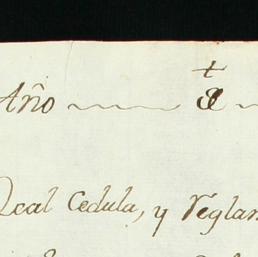 Año
Real Cedula, y Reglam